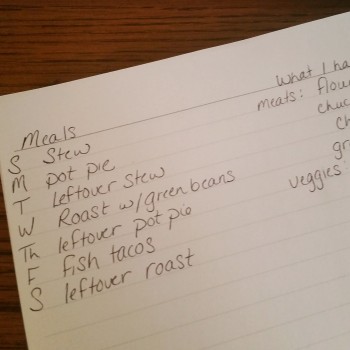 Meals
S Stew
M pot pie
T leftover stew
W Roast w/green beans
Th leftover pot pie
F fish tacos
S leftover roast
What I ha
meats: flou
chuc
ch
gr
veggies: